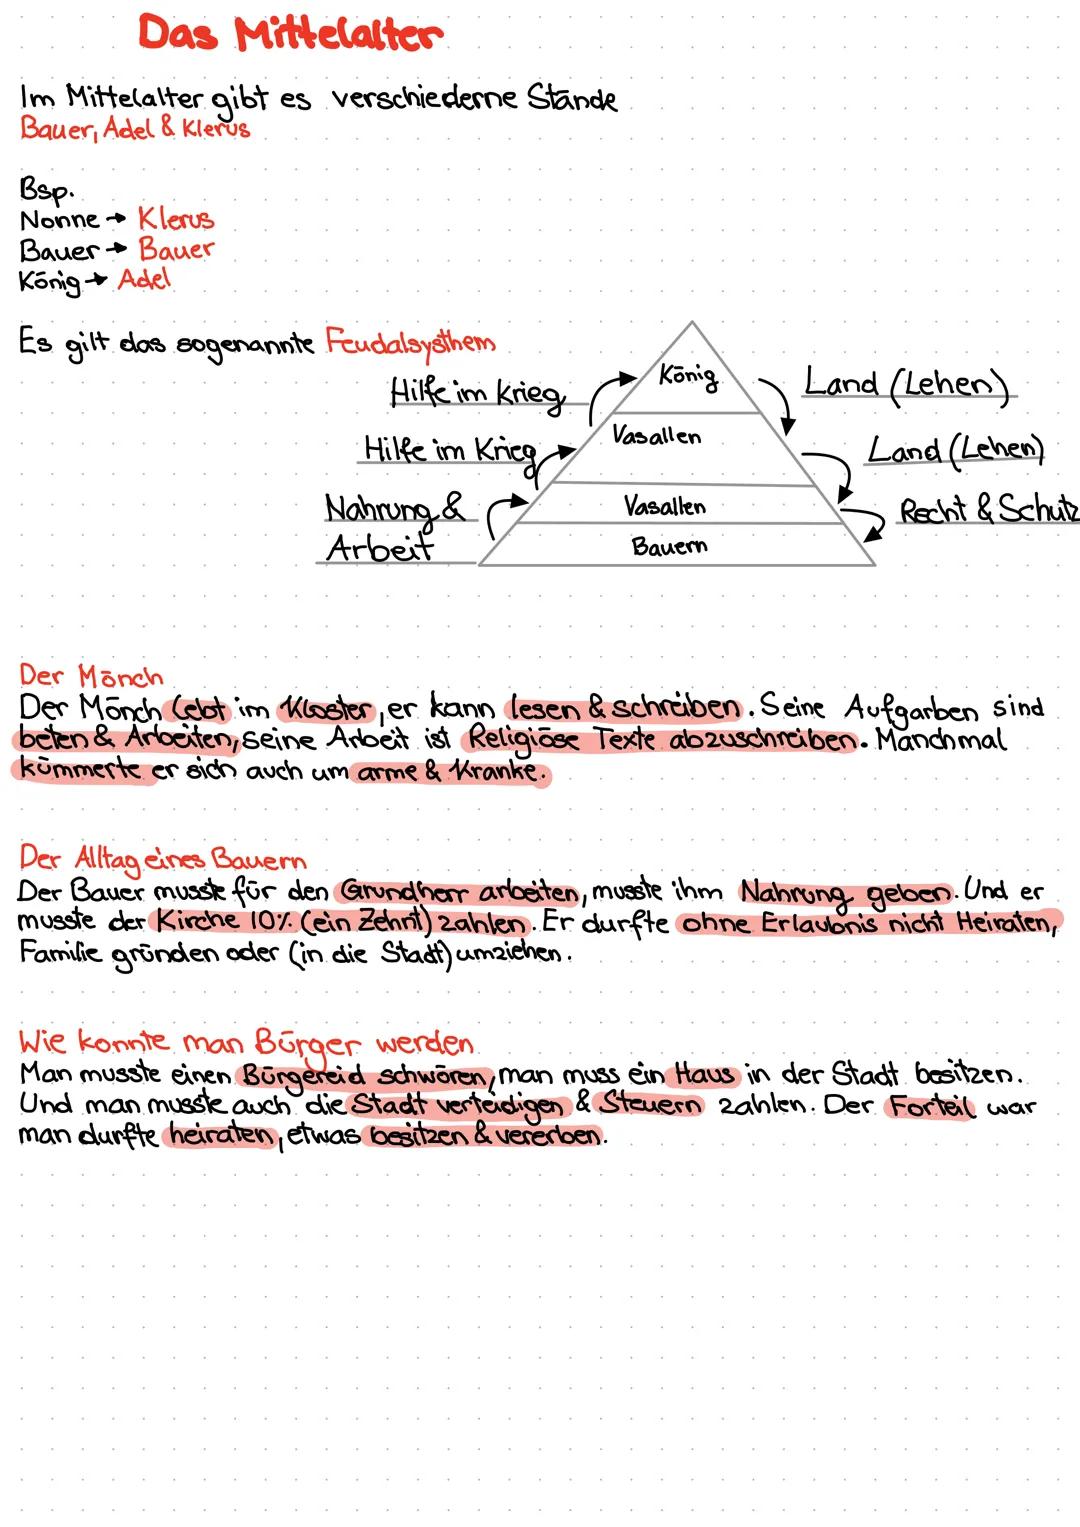 Das Mittelalter
Im Mittelalter gibt es verschiederne Stände
Bauer, Adel & Klerus
Bsp.
Nonne → Klerus
Bauer → Bauer
König → Adel
Es gilt das sogenannte Feudalsysthem
König
Hilfe im Krieg
Land (Lehen)
Vasallen
Hilfe im Krieg
Land (Lehen)
Nahrung &
Arbeit
Vasallen
Recht & Schutz
Bauern
Der Mönch
Der Mönch lebt im Kloster, er kann lesen & schreiben. Seine Aufgarben sind
beten & Arbeiten, seine Arbeit ist Religiöse Texte abzuschreiben. Manchmal
kümmerte er sich auch um arme & Kranke.
Der Alltag eines Bauern
Der Bauer musste für den Grundherr arbeiten, musste ihm Nahrung geben. Und er
musste der Kirche 10% (ein Zehnt) zahlen. Er durfte ohne Erlaubnis nicht Heiraten,
Familie gründen oder (in die Stadt) umziehen.
Wie konnte man Bürger werden
Man musste einen Bürgereid schwören, man muss ein Haus in der Stadt besitzen.
Und man musste auch die Stadt verteidigen & Steuern zahlen. Der Forteil war
man durfte heiraten, etwas besitzen & vererben.